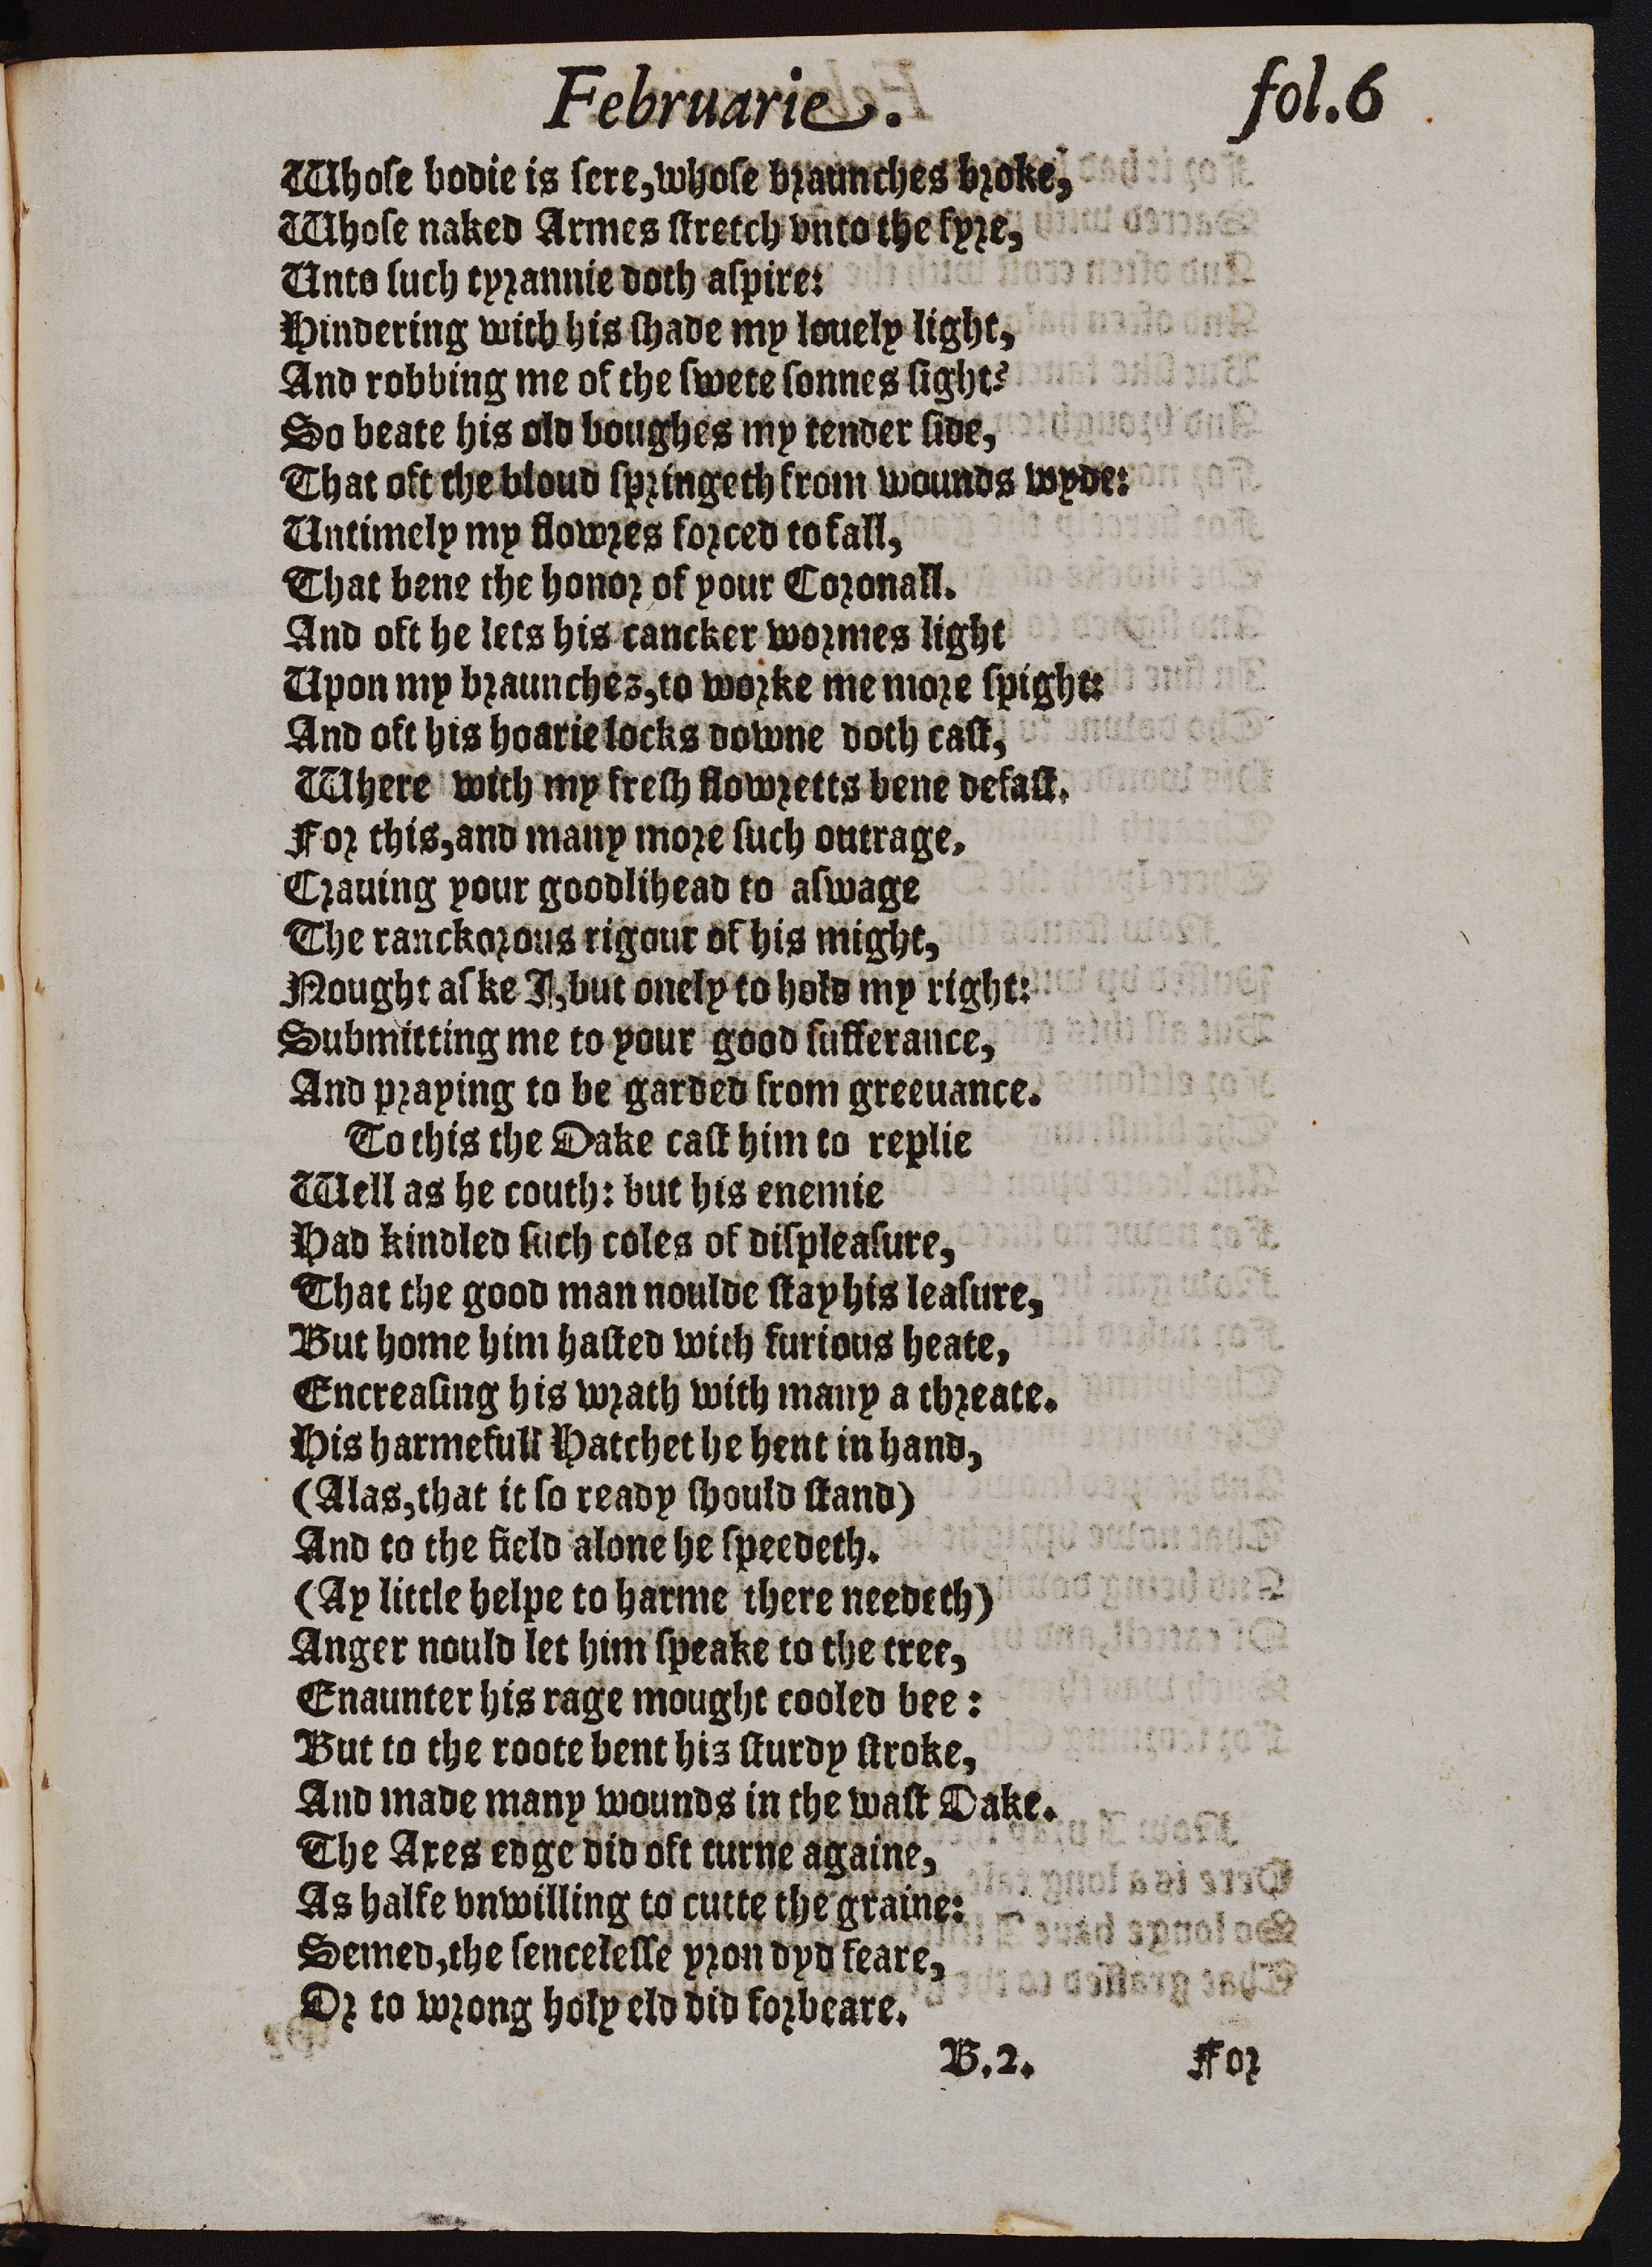 Februarie. fol.6
Whoſe bodie is ſere, whoſe braunches broke,
Whoſe naked Armes ſtretch vnto the fyre,
Unto ſuch tyrannie doth aſpire:
Hindering with his ſhade my louely light,
And robbing me of the ſwete ſonnes ſight?
So beate his old boughes my tender ſide,
That oft the bloud ſpringeth from wounds wyde:
Untimely my flowres forced to fall,
That bene the honor of your Coronall.
And oft he lets his cancker wormes light
Upon my braunches, to worke me more ſpight:
And oft his hoarie locks downe doth caſt,
Where with my freſh flowretts bene defaſt.
For this, and many more ſuch outrage,
Crauing your goodlihead to aſwage
The ranckorous rigour of his might,
Nought aſke I, but onely to hold my right:
Submitting me to your good ſufferance,
And praying to be garded from greeuance.
To this the Oake caſt him to replie
Well as he couth: but his enemie
Had kindled ſuch coles of diſpleaſure,
That the good man noulde ſtay his leaſure,
But home him haſted with furious heate,
Encreaſing his wrath with many a threate.
His harmefull Hatchet he hent in hand,
(Alas, that it ſo ready ſhould ſtand)
And to the field alone he ſpeedeth.
(Ay little helpe to harme there needeth)
Anger nould let him ſpeake to the tree,
Enaunter his rage mought cooled bee:
But to the roote bent his ſturdy ſtroke,
And made many wounds in the waſt Oake.
The Axes edge did oft turne againe,
As halfe vnwilling to cutte the graine:
Semed, the ſenceleſſe yron dyd feare,
Or to wrong holy eld did forbeare.
B.2. For